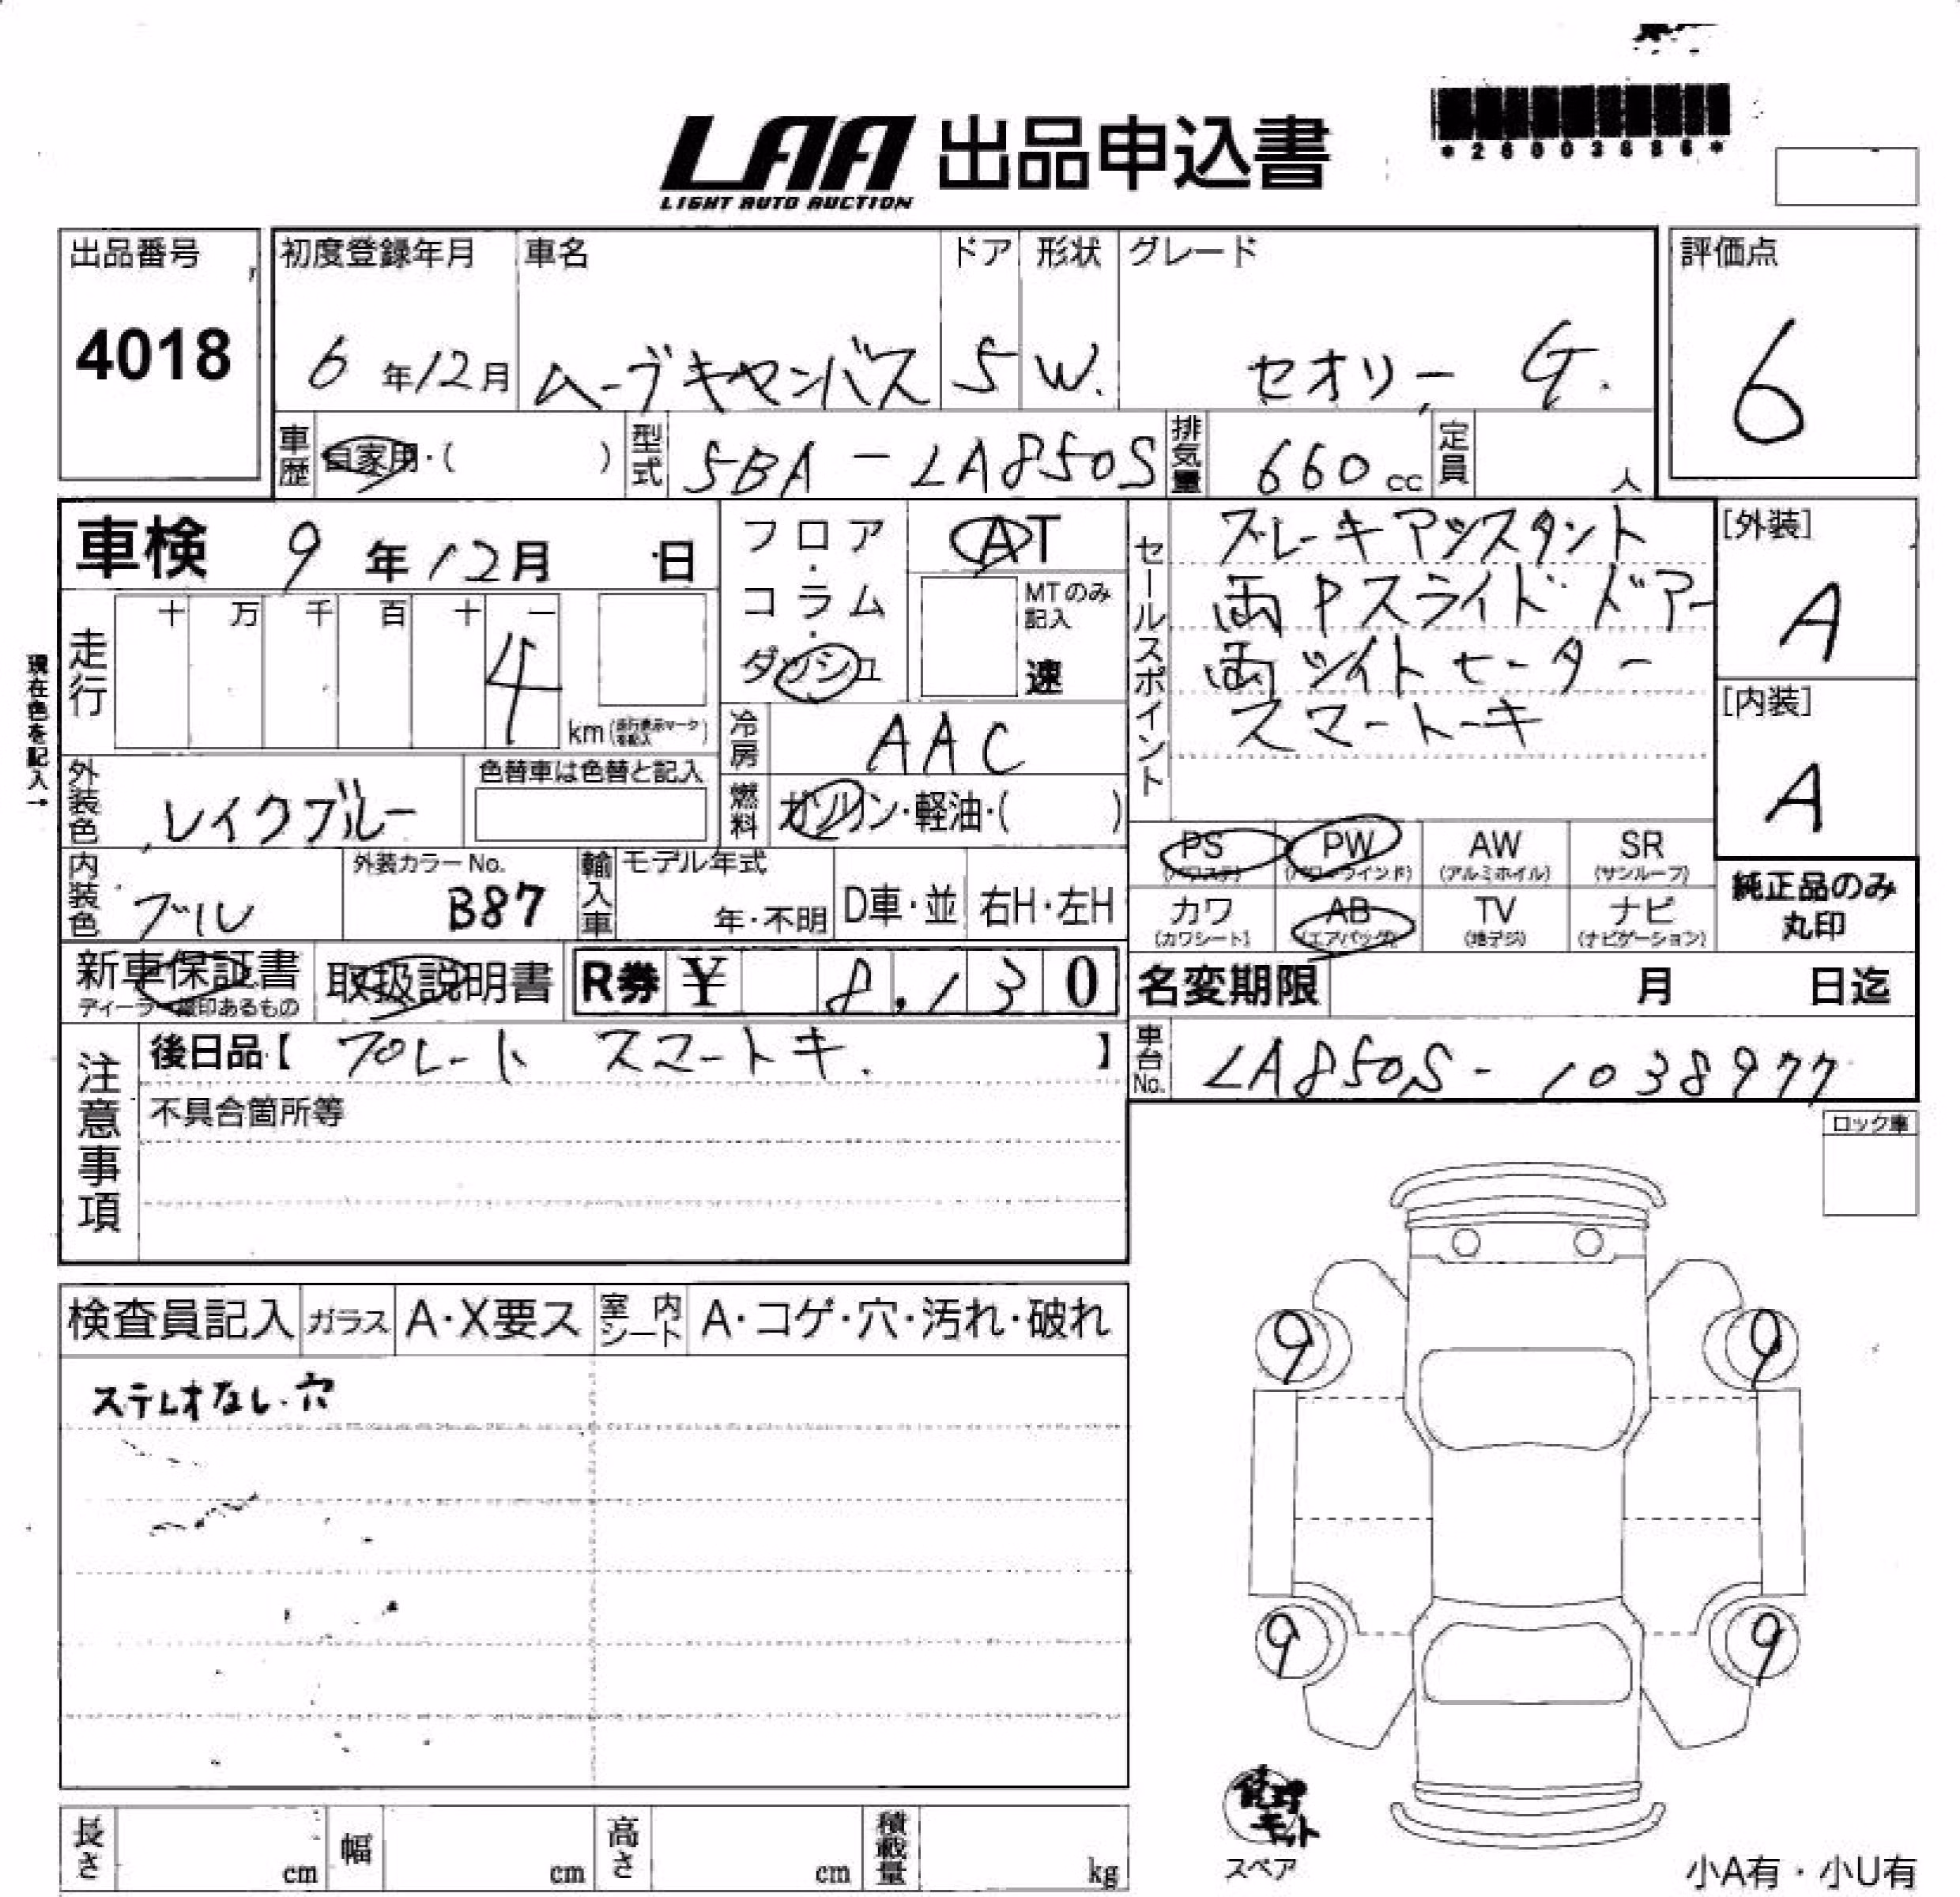 LAA 出品申込書
LIGHT AUTO AUCTION
*26003886*
出品番号
4018
初度登録年月
6 年 12 月
車名
ムーヴキャンバス
ドア
5
形状
W.
グレード
セオリー G.
評価点
6
車歴
自家用・( )
型式
5BA-LA850S
排気量
660 cc
定員
人
車検 9 年 12 月 日
現在色を記入→
走行
十 万 千 百 十 一
4
km (走行表示マークを記入)
フロア・コラム・ダッシュ
AT
MTのみ記入
速
冷房
AAC
燃料
ガソリン・軽油・( )
外装色
レイクブルー
色替車は色替と記入
内装色
ブル
外装カラーNo.
B87
輸入車
モデル年式
年・不明
D車・並
右H・左H
セールスポイント
ブレーキアッスタント
両Pスライドドアー
両ツイトヒーター
スマートーキ
[外装]
A
[内装]
A
PS (パワステ)
PW (パワーウインド)
AW (アルミホイル)
SR (サンルーフ)
カワ (カワシート)
AB (エアバッグ)
TV (地デジ)
ナビ (ナビゲーション)
純正品のみ
丸印
新車保証書
取扱説明書
R券 ¥ 8,130
名変期限 月 日迄
車台No.
LA850S-1038977
注意事項
後日品【 プレート スマートキ. 】
不具合箇所等
ロック車
検査員記入
ガラス
A・X要ス
室内シート
A・コゲ・穴・汚れ・破れ
ステレオなし.穴
9 9
9 9
スペア
長さ cm
幅 cm
高さ cm
積載量 kg
小A有・小U有